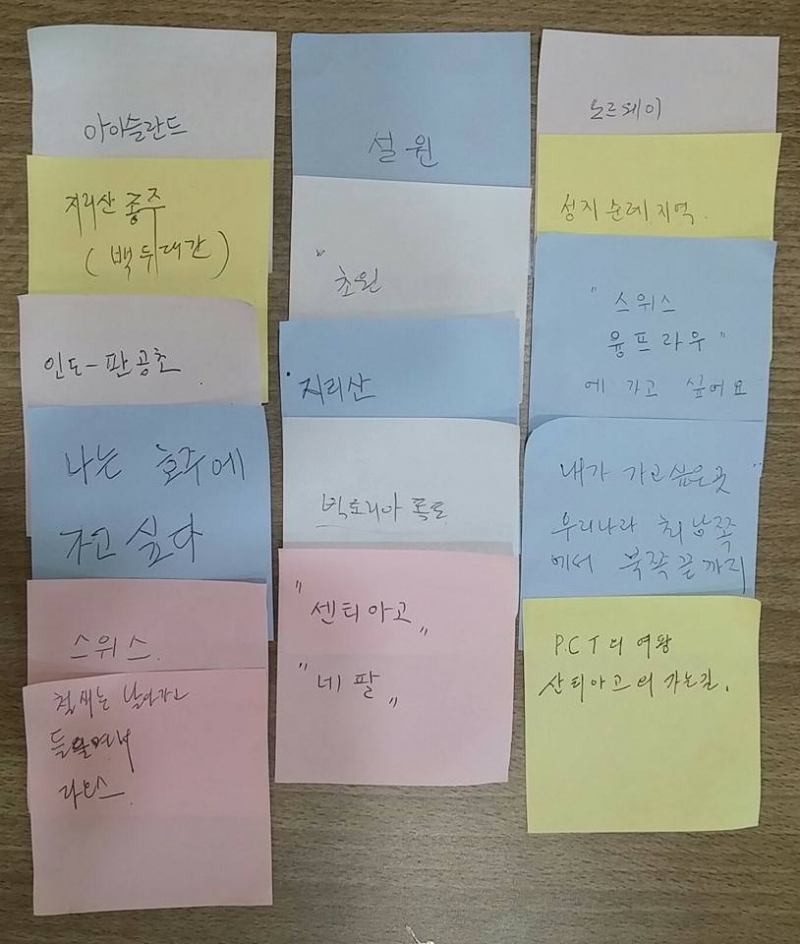 아이슬란드
지리산 종주
(백두대간)
인도-판공초
나는 호주에
가고 싶다
스위스.
철새는 날아가고
라파스.
설원
"초원
지리산
빅토리아 폭포
"센티아고"
"네팔"
노르웨이
성지 순례 지역.
"스위스
융프라우"
에 가고 싶어요
내가 가고싶은곳
우리나라 최남쪽
에서 북쪽끝까지
P.C.T의 여왕
산티아고의 가는길.